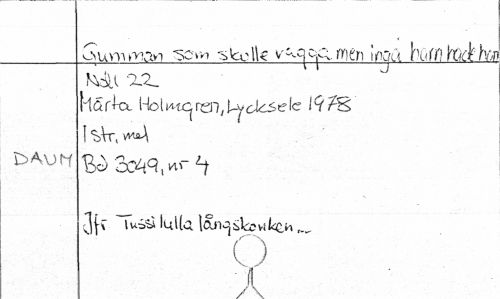 Gumman som skulle vagga men inga barn hade hon
Noll 22
Märta Holmgren, Lycksele 1978
1 str, mel
DAUM Bd 3049, nr 4
Jfr Tussilulla långskanken...